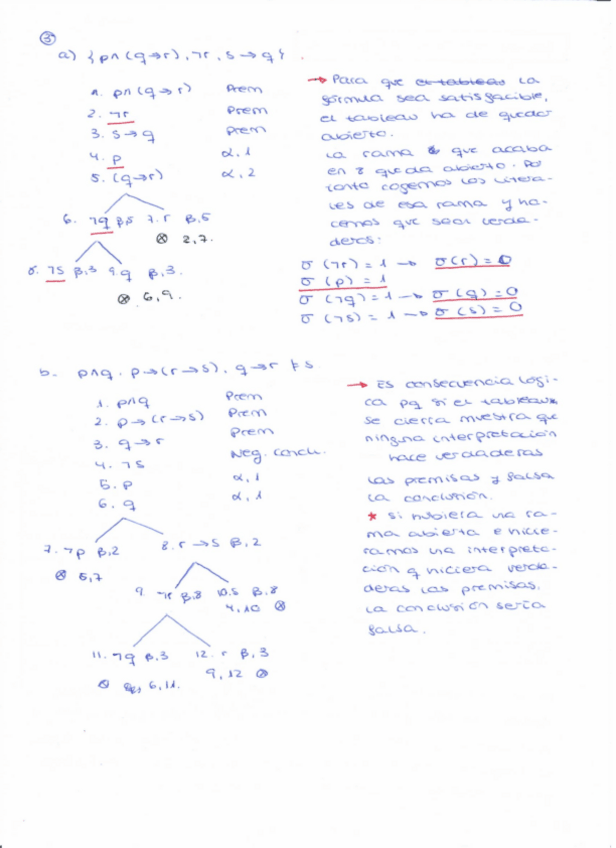 ③
a) {p∧(q→r), ¬r, s→q}.
1. p∧(q→r) Prem
2. ¬r Prem
3. s→q Prem
4. p α,1
5. (q→r) α,2
6. ¬q β,5 7. r β,5
⊗ 2,7.
8. ¬s β,3 9. q β,3.
⊗ 6,9.
→ Para que el tableau la
fórmula sea satisfacible,
el tableau ha de quedar
abierto.
La rama que acaba
en 8 queda abierta. Por
tanto cogemos los litera-
les de esa rama y ha-
cemos que sean verda-
deros:
σ(¬r) = 1 → σ(r) = 0
σ(p) = 1
σ(¬q) = 1 → σ(q) = 0
σ(¬s) = 1 → σ(s) = 0
b. p∧q, p→(r→s), q→r ⊧ s
1. p∧q Prem
2. p→(r→s) Prem
3. q→r Prem
4. ¬s Neg. conclu.
5. p α,1
6. q α,1
7. ¬p β,2 8. r→s β,2
⊗ 5,7
9. ¬r β,8 10. s β,8
4,10 ⊗
11. ¬q β,3 12. r β,3
⊗ 6,11. 9,12 ⊗
→ Es consecuencia lógi-
ca pq si el tableau
se cierra muestra que
ninguna interpretación
hace verdaderas
las premisas y falsa
la conclusión.
* Si hubiera una ra-
ma abierta e hicie-
ramos una interpreta-
ción q hiciera verda-
deras las premisas,
la conclusión sería
falsa.